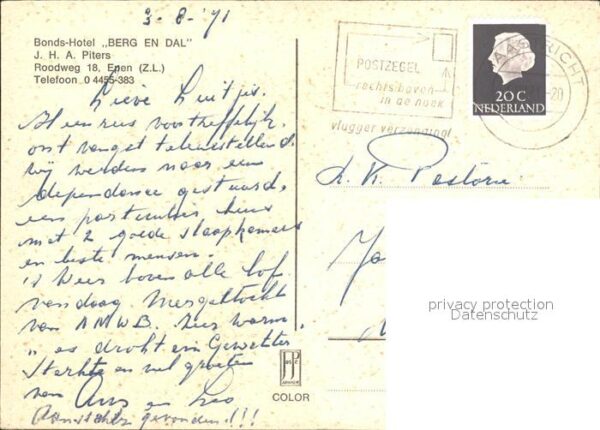 3-8-'71
Bonds-Hotel „BERG EN DAL"
J. H. A. Piters
Roodweg 18, Epen (Z.L.)
Telefoon 0 4455-383
Lieve Luitjes.
Heenreis voortreffelijk,
ontvangst teleurstellend.
Wij werden naar een
dependance gestuurd,
een particulier huis
met 2 goede slaapkamers
en beste mensen.
't Weer boven alle lof
vandaag Mergeltocht
van ANWB. Zeer warm
„ es droht ein Gewitter
Sterkte en veel groeten
van Ans en Leo
gevonden!!!
POSTZEGEL
rechtsboven
in de hoek
vlugger verzending!
MAASTRICHT
-20
20 C
NEDERLAND
COLOR
privacy protection
Datenschutz